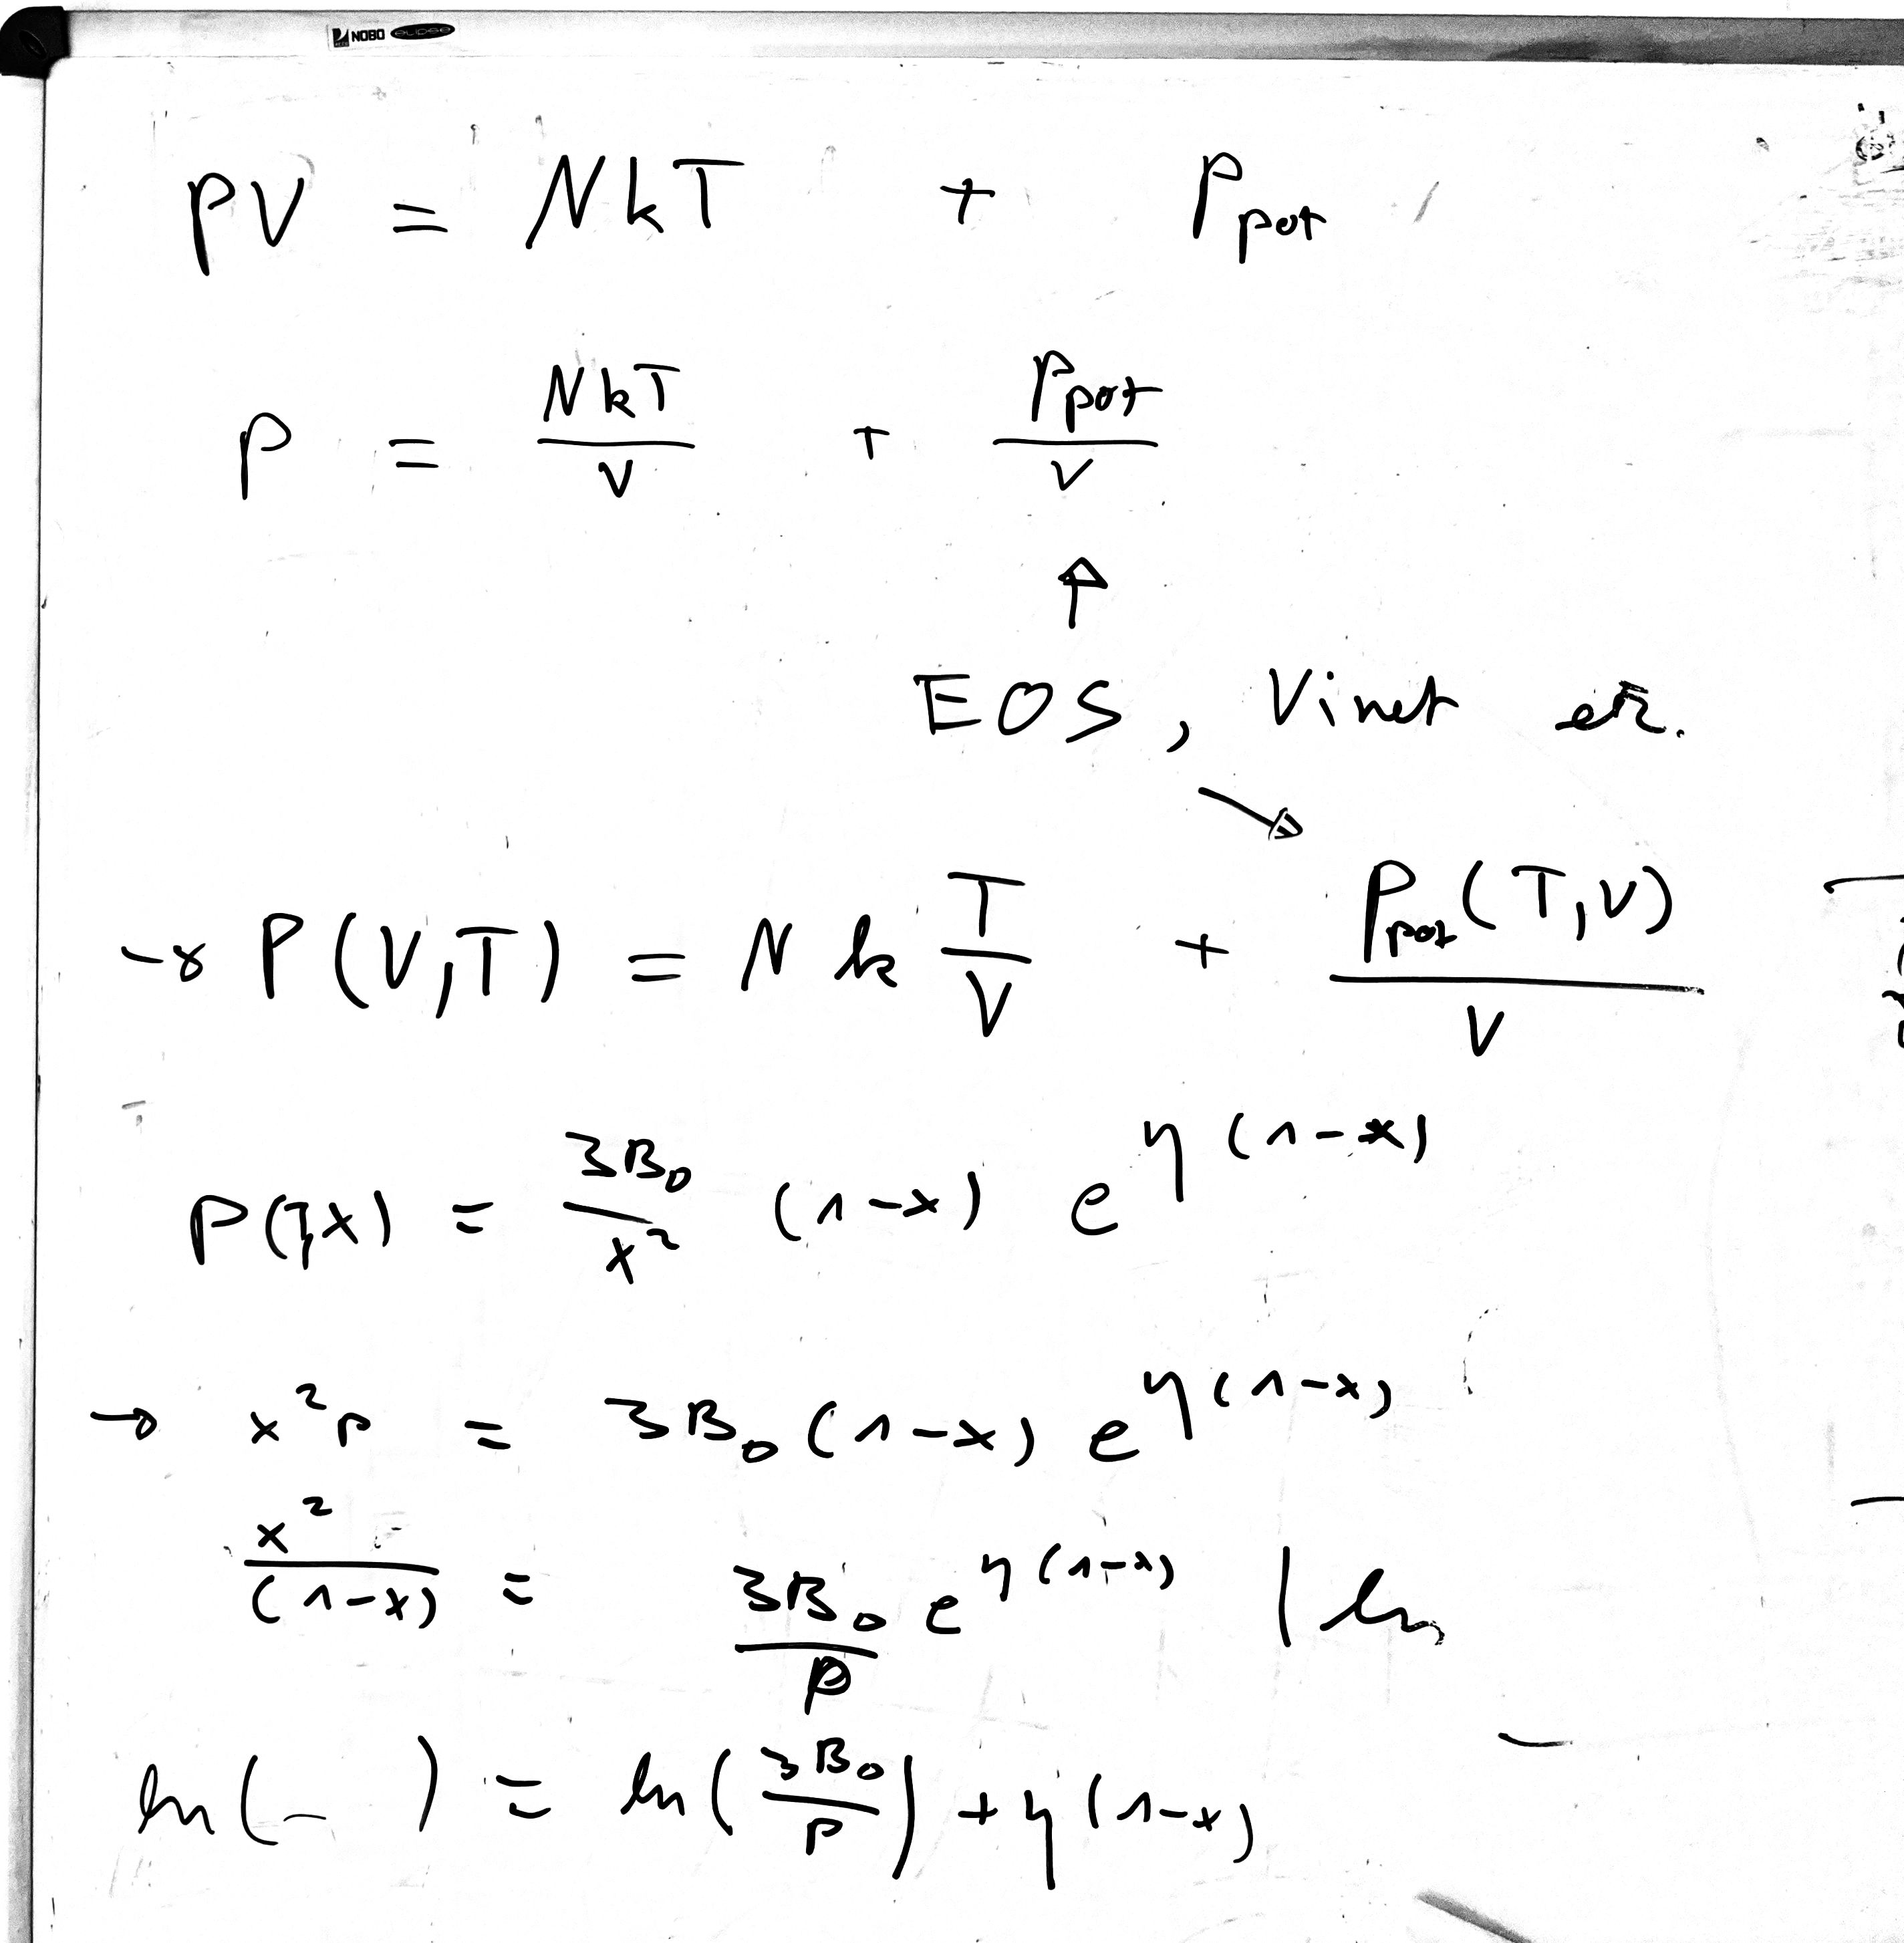 NOBO eclipse
PV = NkT + P_pot
P = NkT/V + P_pot/V
↑
EOS, Vinet etc.
↘
→ P(V,T) = N k T/V + P_pot(T,V)/V
P(T,X) = 3B₀/x² (1-x) e^η(1-x)
→ x²p = 3B₀(1-x) e^η(1-x)
x²/(1-x) = 3B₀/p e^η(1-x) | ln
ln(- ) = ln(3B₀/p) + η(1-x)